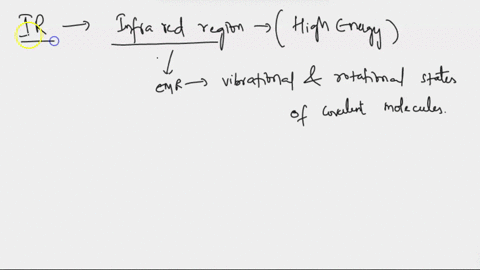 IR → Infrared region → (High Energy)
↓
EMR → vibrational & rotational states
of covalent molecules.